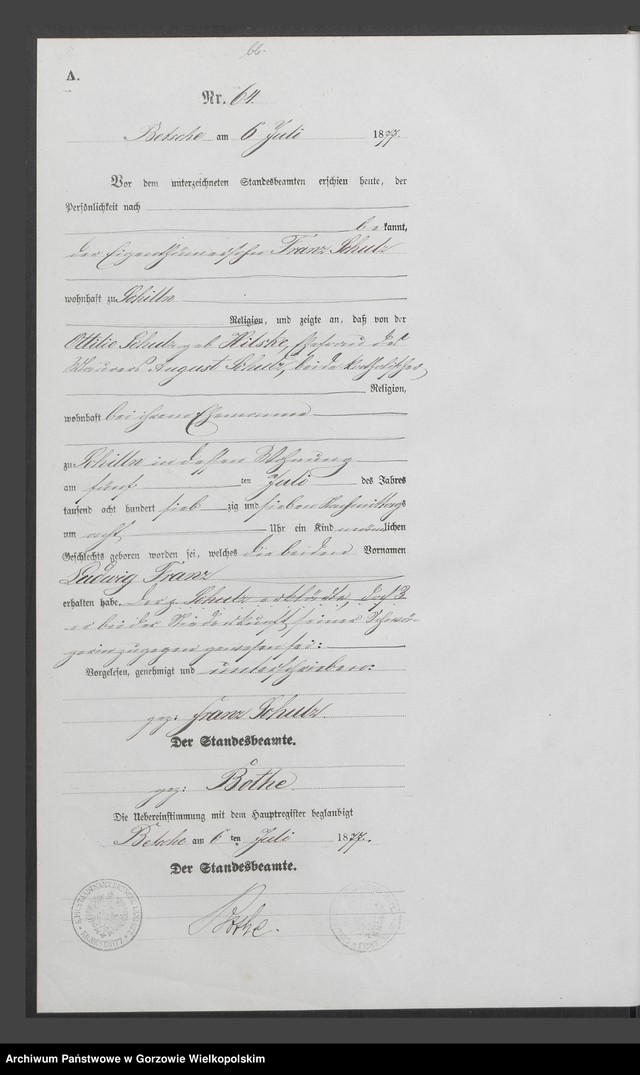 66.
A.
Nr. 64.
Betsche am 6 Juli 1877.
Vor dem unterzeichneten Standesbeamten erschien heute, der
Persönlichkeit nach
bekannt,
der Eigenthümersohn Franz Schulz
wohnhaft zu Schilln
Religion, und zeigte an, daß von der
Ottilie Schulz geb. Hilske, Ehefrau des
Maurers August Schulz, beide katholischer
Religion,
wohnhaft bei ihrem Ehemanne
zu Schilln in dessen Wohnung
am fünf ten Juli des Jahres
tausend acht hundert sieb zig und sieben Nachmittags
um acht Uhr ein Kind männlichen
Geschlechts geboren worden sei, welches die beiden Vornamen
Ludwig Franz
erhalten habe. Der p. Schulz erklärte, daß
er bei der Niederkunft seiner Schwä-
gerin zugegen gewesen sei:
Vorgelesen, genehmigt und unterschrieben:
gez: Franz Schulz.
Der Standesbeamte.
gez: Bothe
Die Uebereinstimmung mit dem Hauptregister beglaubigt
Betsche am 6 ten Juli 1877.
Der Standesbeamte.
Bothe.
Archiwum Państwowe w Gorzowie Wielkopolskim